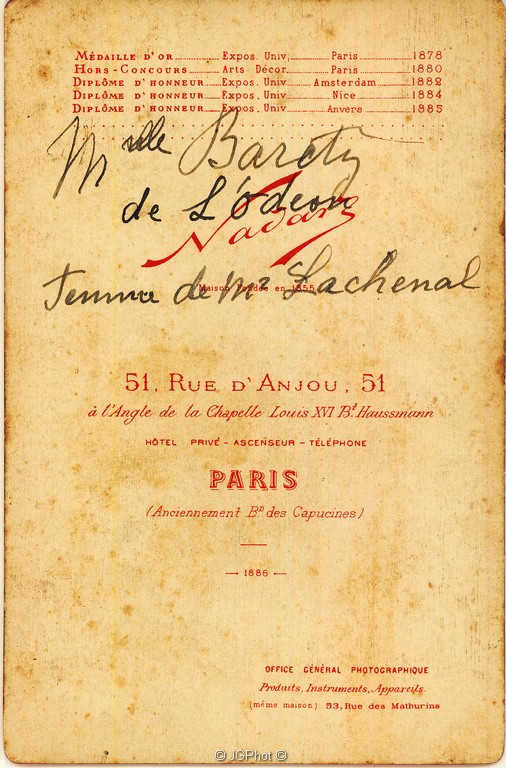 MÉDAILLE D'OR Expos. Univ. Paris 1878
HORS-CONCOURS Arts Décor. Paris 1880
DIPLÔME D'HONNEUR Expos. Univ. Amsterdam 1882
DIPLÔME D'HONNEUR Expos. Univ. Nice 1884
DIPLÔME D'HONNEUR Expos. Univ. Anvers 1885
Mlle Barety
de L'Odeon
Nadar
Femme de Mr Lachenal
Maison Fondée en 1855
51, RUE D'ANJOU, 51
à l'Angle de la Chapelle Louis XVI Bt. Haussmann
HÔTEL PRIVÉ - ASCENSEUR - TÉLÉPHONE
PARIS
(Anciennement BD des Capucines)
— 1886 —
OFFICE GÉNÉRAL PHOTOGRAPHIQUE
Produits, Instruments, Appareils
(même maison) 53, Rue des Mathurins
© JGPhot ©